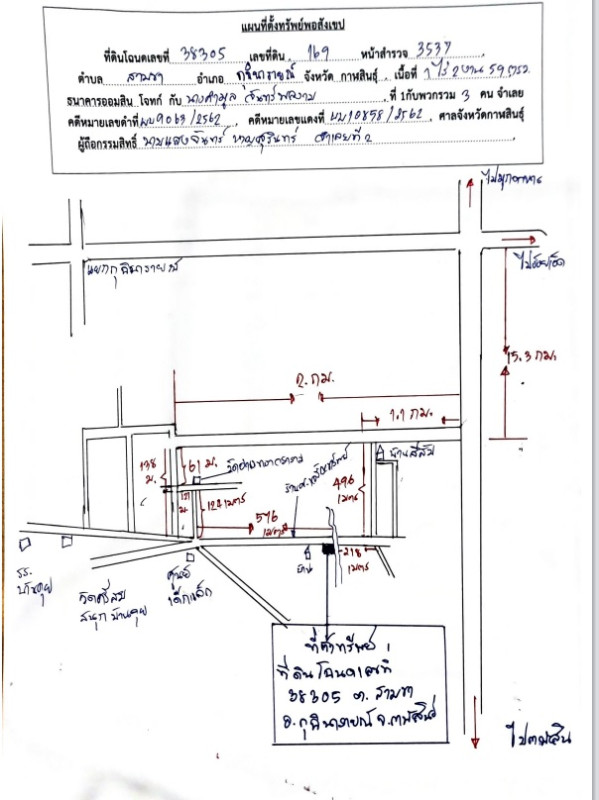 แผนที่ตั้งทรัพย์พอสังเขป
ที่ดินโฉนดเลขที่ 38305 เลขที่ดิน 169 หน้าสำรวจ 3537
ตำบล สามขา อำเภอ กุฉินารายณ์ จังหวัด กาฬสินธุ์ เนื้อที่ 1 ไร่ 2 งาน 59 ตรว.
ธนาคารออมสิน โจทก์ กับ นางคำมูล จันทร์พลงาม ที่ 1กับพวกรวม 3 คน จำเลย
คดีหมายเลขดำที่ ผบ9063/2562 คดีหมายเลขแดงที่ ผบ10858/2562 ศาลจังหวัดกาฬสินธุ์
ผู้ถือกรรมสิทธิ์ จำเลยที่ 2
ไปมุกดาหาร
แยกกุฉินารายณ์
ไปร้อยเอ็ด
15.3 กม.
2 กม.
1.1 กม.
138 ม.
61 ม.
บ้านสี่สิม
124 เมตร
496 เมตร
576 เมตร
218 เมตร
รร.
ศูนย์
เด็กเล็ก
บ้าน
ที่ตั้งทรัพย์
ที่ดินโฉนดเลขที่
38305 ต. สามขา
อ.กุฉินารายณ์ จ.กาฬสินธุ์